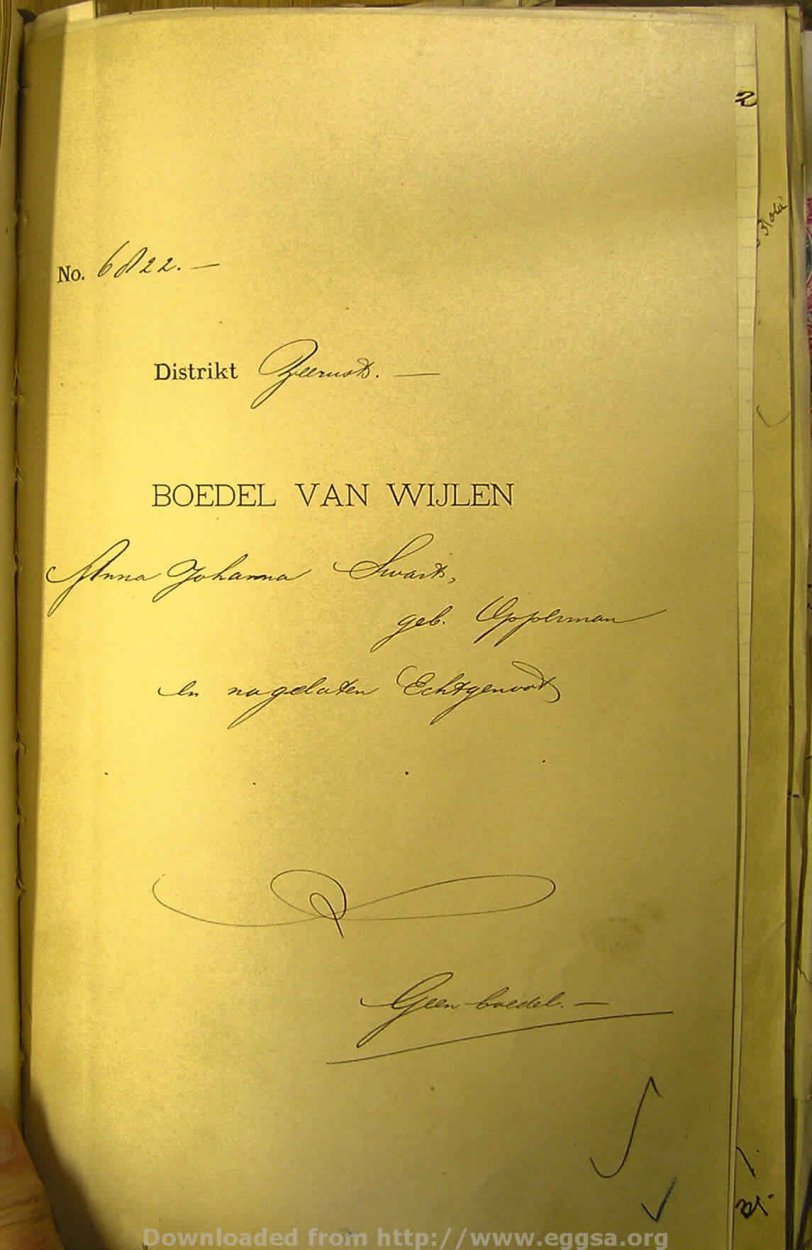 2
No. 6822. —
Distrikt Zeerust. —
BOEDEL VAN WIJLEN
Anna Johanna Swart,
geb. Opperman
en nagelaten Echtgenoot
Geen boedel. —
Downloaded from http://www.eggsa.org